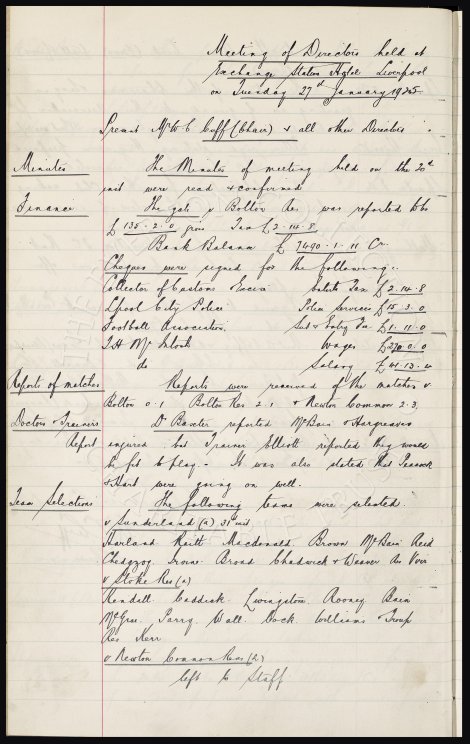 Meeting of Directors held at
Exchange Station Hotel Liverpool
on Tuesday 27th January 1925
Present Mr W C Cuff (Chair) & all other Directors.
Minutes
The Minutes of meeting held on the 20th
inst were read & confirmed
Finance
The gate v Bolton Res was reported to be
£135-2-0 gross Tax £2-14-8
Bank Balance £7490-1-11 Cr.
Cheques were signed for the following:-
Collector of Customs & Excise Tax £2-14-8
Lpool City Police Police Services £15-3-0
Football Association. Sub & Entry Fee £1-11-0
T.H. McIntosh Wages £270-0-0
do Salary £41-13-4
Reports of matches
Reports were received of the matches v
Bolton 0.1 Bolton Res 2.1 & Newton Common 2.3.
Doctors & Trainers
Report
Dr Baxter reported McBain & Hargreaves
injured but Trainer Elliott reported they would
be fit to play. It was also stated that Peacock
& Hart were going on well.
Team Selections
The following teams were selected.
v Sunderland (a) 31st inst
Harland Raitt Macdonald Brown McBain Reid
Chedgzoy Irvine Broad Chadwick & Weaver Res Virr
v Stoke Res (a)
Kendall Caddick Livingstone Rooney Bain
Parry Wall Cock Williams & Troup
Res Kerr
v Newton Common Res (2)
left to Staff